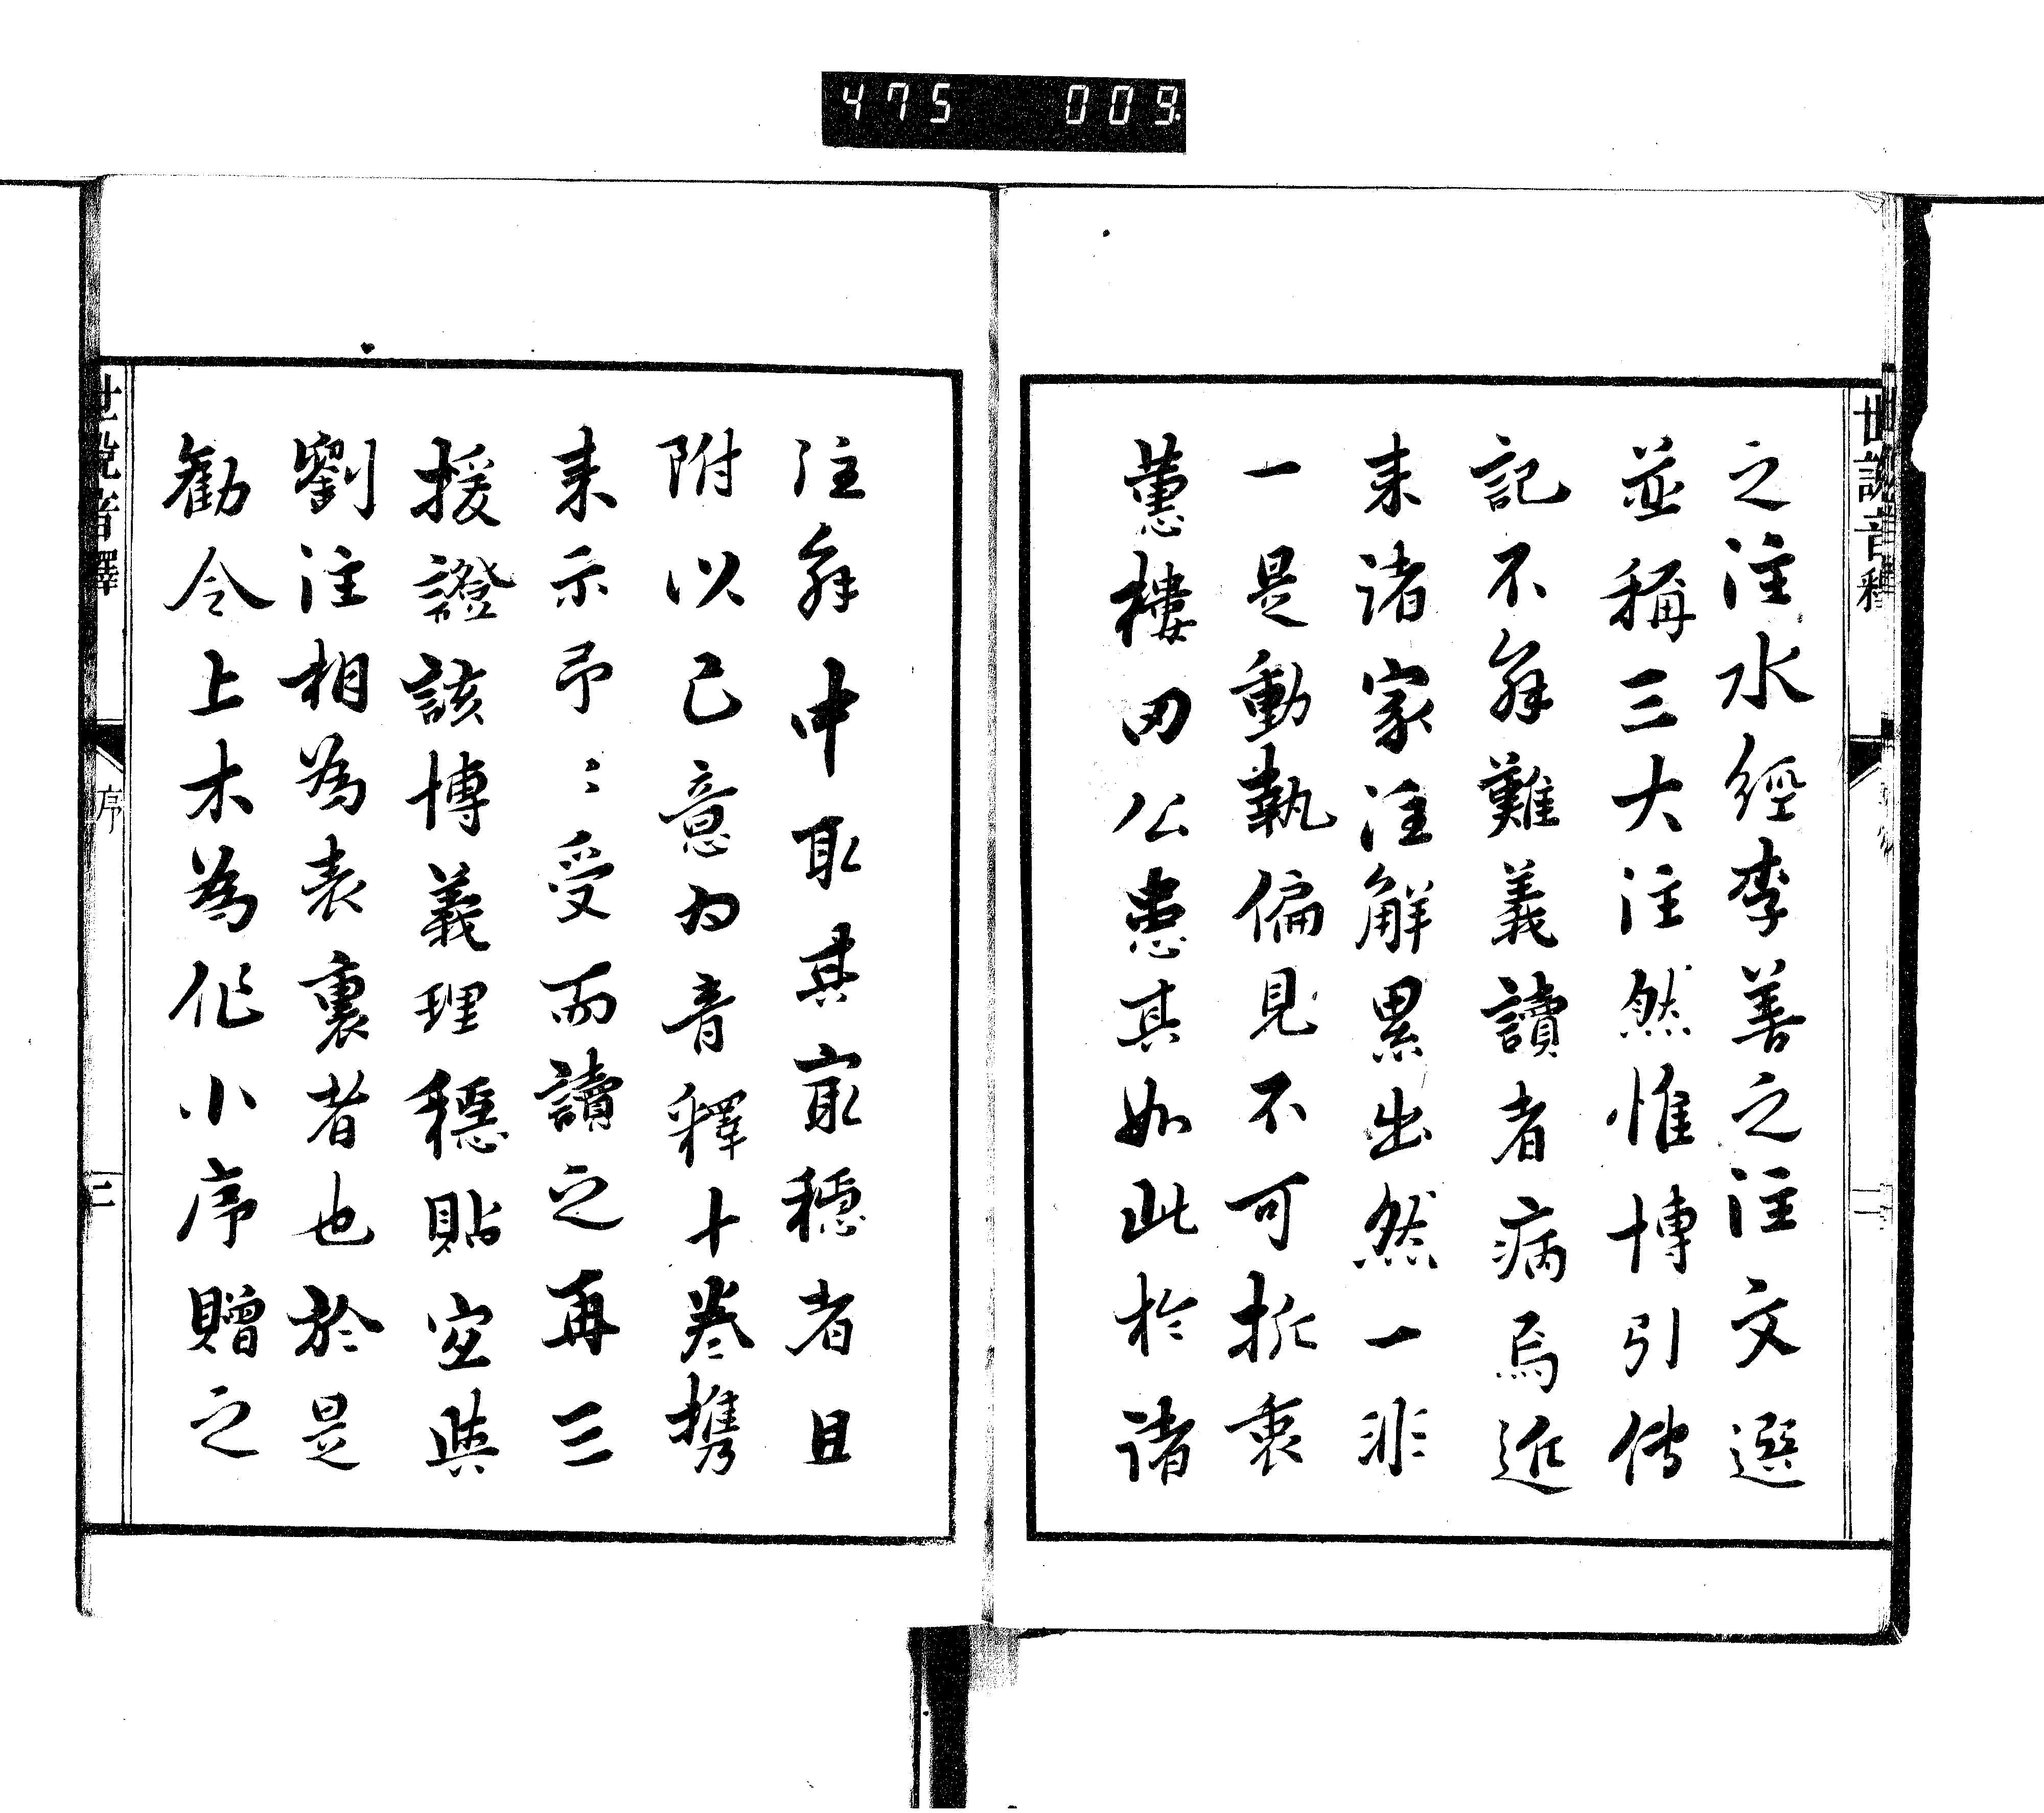 475 009
世説音釋
二
之注水經李善之注文選
並稱三大注然惟博引傳
記不解難義讀者病焉近
来諸家注解累出然一非
一是動執偏見不可折衷
蕙樓田公患其如此於諸
注解中取其最穩者且
附以己意為音釋十卷携
来示予〻受而讀之再三
援證該博義理穩貼宜與
劉注相為表裏者也於是
勸令上木為作小序贈之
世説音釋
序
三